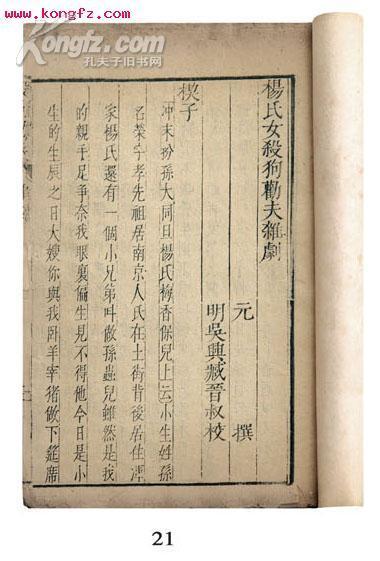 www.kongfz.com
Kongfz.com
孔夫子旧书网
楊氏女殺狗勸夫雜劇
元 撰
明吳興臧晉叔校
楔子
冲末扮孫大同旦楊氏梅香保兒上云小生姓孫
名榮字孝先祖居南京人氏在土街背後居住渾
家楊氏還有一個小兄弟叫做孫蟲兒雖然是我
的親手足爭奈我眼裏偏生見不得他今日是小
生的生辰之日大嫂你與我卧羊宰猪做下筵席
21